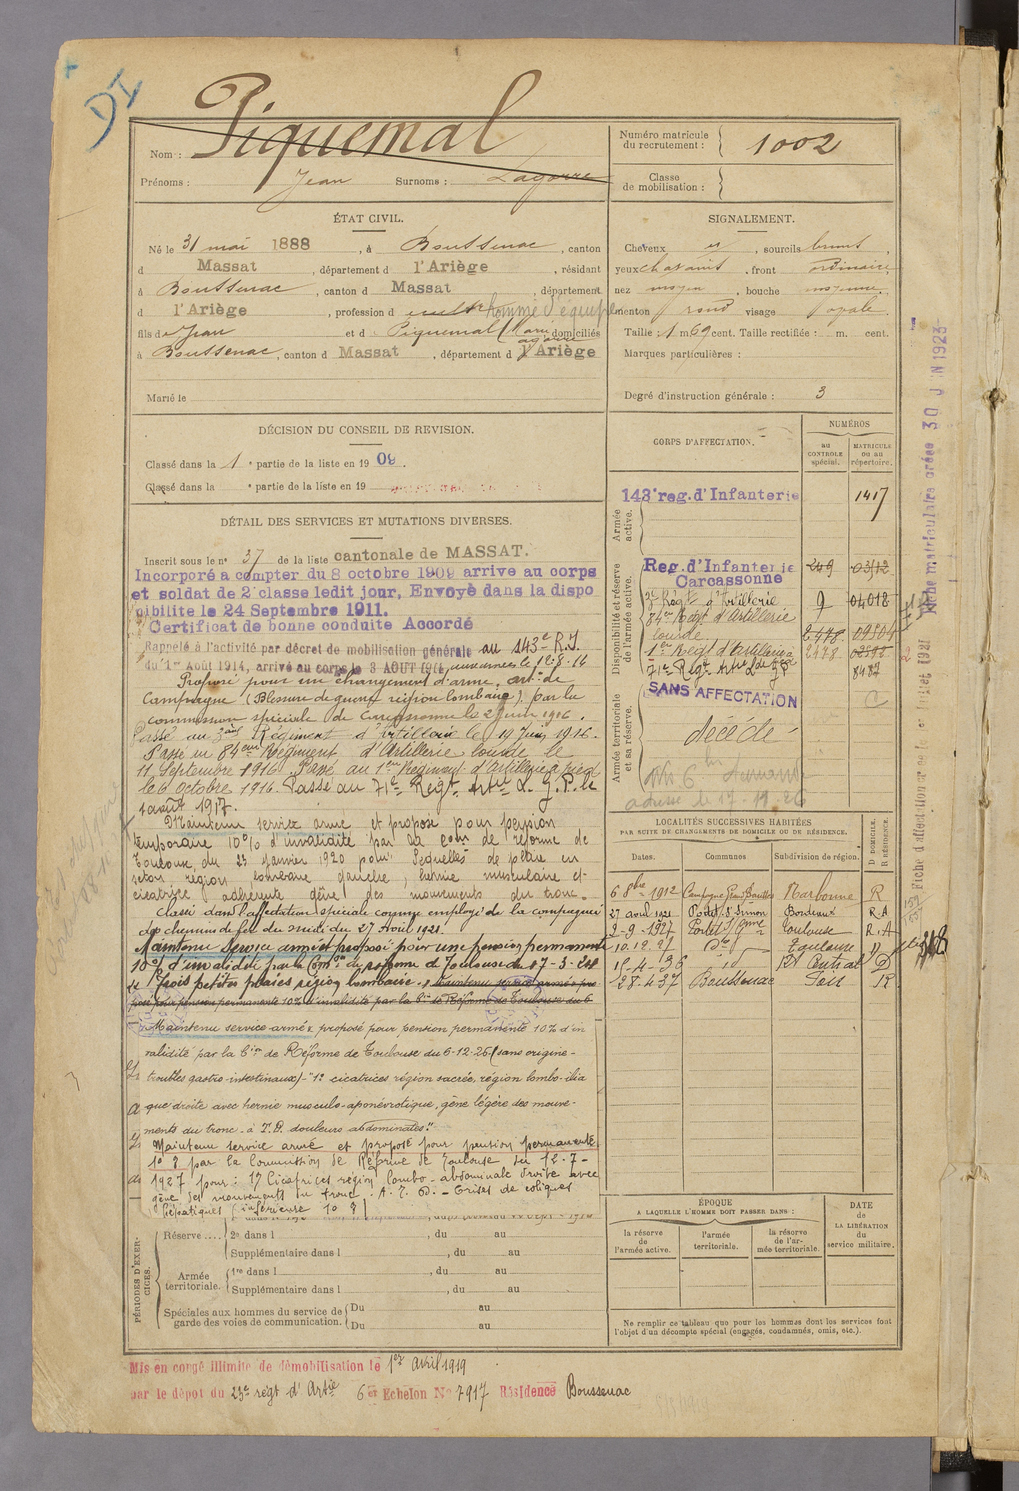 DI
Nom : Piquemal
Prénoms : Jean Surnoms : Lagarre
Numéro matricule du recrutement : 1002
Classe de mobilisation :
ÉTAT CIVIL.
Né le 31 mai 1888, à Boussenac, canton
d Massat, département d l'Ariège, résidant
à Boussenac, canton d Massat, département
d l'Ariège, profession d cultr homme d'équipe
fils de Jean et d Piquemal Marie domiciliés
à Boussenac, canton d Massat, département d l'Ariège
Marié le
SIGNALEMENT.
Cheveux , sourcils bruns,
yeux chatains, front ordinaire,
nez moyen, bouche moyenne,
menton rond visage ovale.
Taille : 1 m. 69 cent. Taille rectifiée : m. cent.
Marques particulières :
Degré d'instruction générale : 3
DÉCISION DU CONSEIL DE REVISION.
Classé dans la 1 e partie de la liste en 1909.
Classé dans la e partie de la liste en 19
DÉTAIL DES SERVICES ET MUTATIONS DIVERSES.
Inscrit sous le n° 37 de la liste cantonale de MASSAT.
Incorporé a compter du 8 octobre 1909 arrive au corps
et soldat de 2e classe ledit jour, Envoyé dans la dispo
nibilite le 24 Septembre 1911.
Certificat de bonne conduite Accordé
Rappelé à l'activité par décret de mobilisation générale au 143e R.I.
du 1er Août 1914, arrivé au corps le 3 AOUT 1914, aux armées le 12.8.14
Proposé pour un changement d'arme, art. de
Campagne (Blessure de guerre région lombaire) par la
commission spéciale de Carcassonne le 2 juin 1916.
Passé au 3eme Régiment d'Artillerie le 19 Juin 1916.
Passé au 84eme Régiment d'Artillerie lourde le
11 Septembre 1916. Passé au 1er Régiment d'Artillerie à pied
le 6 Octobre 1916. Passé au 71e Regt Artie L. G. P. le
1 août 1917.
Maintenu service armé et proposé pour pension
temporaire 10% d'invalidité par la Com°n de réforme de
Toulouse, du 23 Janvier 1920 pour : Sequelles de plaie en
seton région lombaire gauche, hernie musculaire et
cicatrice adhérente gêne des mouvements du tronc.
Classé dans l'affectation spéciale comme employé de la compagnie
des chemins de fer du midi du 27 Avril 1921.
Maintenu Service armé et proposé pour une pension permanente
10% d'invalidité par la Com°n de réforme de Toulouse du 17-3-24
Trois petites plaies région lombaire. Maintenu service armé et pro
posé pour pension permanente 10% d'invalidité par la Con de Réforme de Toulouse du 6
Maintenu service armé & proposé pour pension permanente 10% d'in
validité par la Con de Réforme de Toulouse du 6-12-26 (sans origine -
troubles gastro-intestinaux) - "1° cicatrices région sacrée, région lombo-ilia
que droite avec hernie musculo-aponévrotique, gêne légère des mouve-
ments du tronc. à I.P. douleurs abdominales".
Maintenu service armé et proposé pour pension permanente
10 % par la Commission de Réforme de Toulouse du 12-7-
1927 pour : 1°) Cicatrices région lombo-abdominale droite avec
gêne des mouvements du tronc. - Crises de coliques
hépatiques (inférieure 10 %)
CORPS D'AFFECTATION.
NUMÉROS
au CONTROLE spécial.
MATRICULE ou au répertoire.
Armée active.
143e reg. d'Infanterie 1417
Disponibilité et réserve de l'armée active.
Reg. d'Infanterie Carcassonne 249 03912
3e Régt d'Artillerie 9 04018
84e Regt d'Artillerie lourde 2478 09504
1er Regt d'Artillerie à 2478
71e Regt Artie L de G P 8487
Armée territoriale et sa réserve.
SANS AFFECTATION
décédé
LOCALITÉS SUCCESSIVES HABITÉES
PAR SUITE DE CHANGEMENTS DE DOMICILE OU DE RÉSIDENCE.
Dates. Communes Subdivision de région. D DOMICILE. R RÉSIDENCE.
6 8bre 1912 Narbonne R
27 avril 1921 Portet St Simon Bordeaux R.A
2-9-1927 Portet St Simon Toulouse R.A
10.12.27 do Toulouse D
15-4-36 id Rt Central D
28-4-37 Boussenac Foix R
ÉPOQUE
A LAQUELLE L'HOMME DOIT PASSER DANS :
la réserve de l'armée active.
l'armée territoriale.
la réserve de l'armée territoriale.
DATE de LA LIBÉRATION du service militaire.
Ne remplir ce tableau que pour les hommes dont les services font
l'objet d'un décompte spécial (engagés, condamnés, omis, etc.).
PÉRIODES D'EXERCICES.
Réserve .... 2e dans l , du au
Supplémentaire dans l , du au
Armée territoriale. 1re dans l , du au
Supplémentaire dans l , du au
Spéciales aux hommes du service de garde des voies de communication. Du au
Du au
Mis en congé illimité de démobilisation le 1er Avril 1919
par le dépôt du 23e regt d'Artie 6er Echelon N° 7917 Résidence Boussenac
Fiche matriculaire créée 30 JUIN 1923